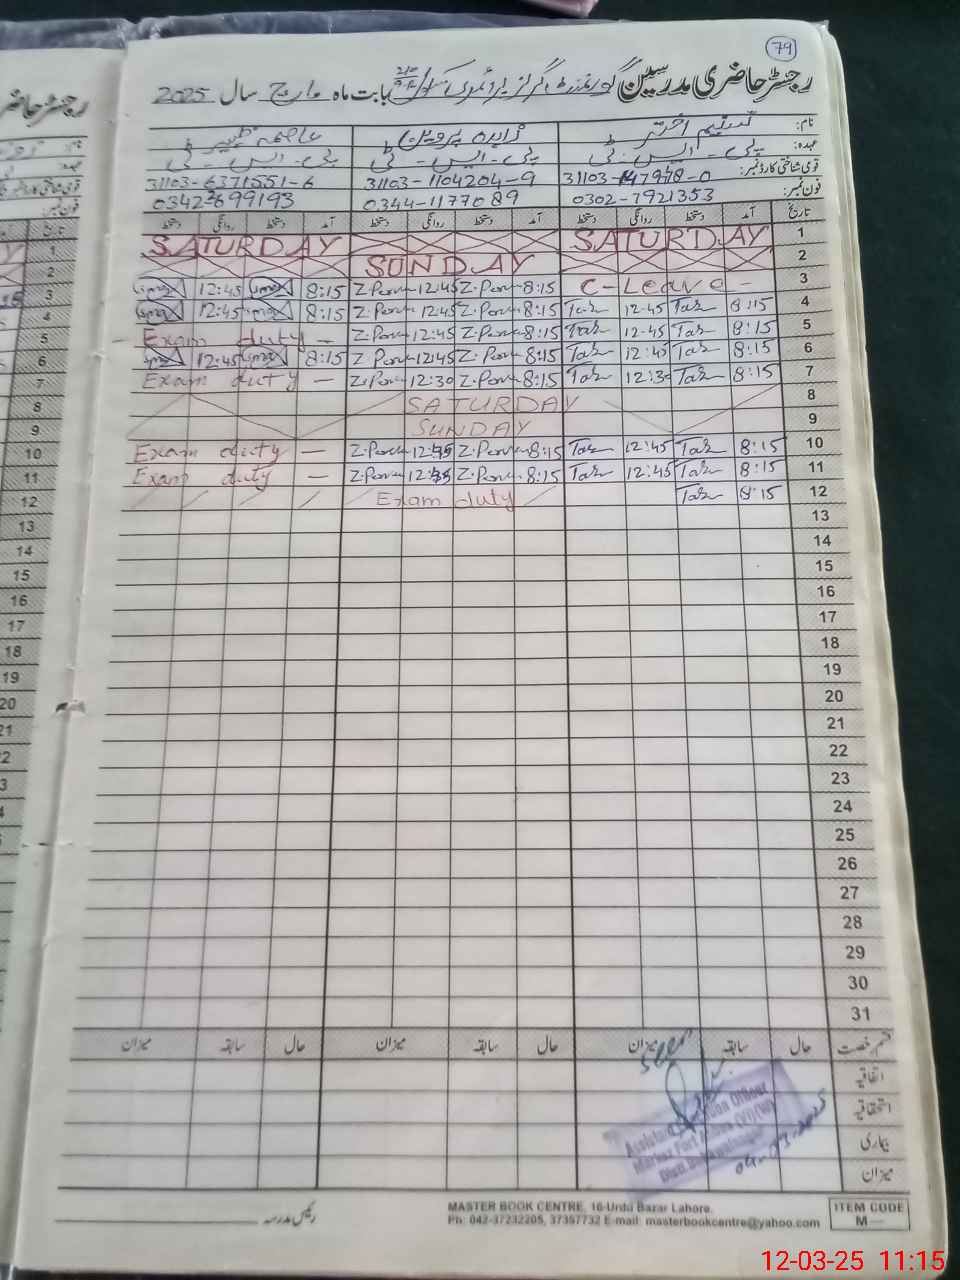 79
رجسٹر حاضری مدرسین گورنمنٹ گرلز پرائمری سکول بابت ماہ مارچ سال 2025
نام: تسنیم اختر زاہدہ پروین
عہدہ: پی - ایس - ٹی پی - ایس - ٹی پی - ایس - ٹی
قومی شناختی کارڈ نمبر: 31103-1104204-9 31103-6371551-6
فون نمبر: 0302-7921353 0344-1177089
تاریخ آمد دستخط روانگی دستخط آمد دستخط روانگی دستخط آمد دستخط روانگی دستخط
SATURDAY SATURDAY 1
SUNDAY 2
12:45 8:15 Z.Parv 12:45 Z.Parv 8:15 C-Leave - 3
12:45 8:15 Z.Parv 12:45 Z.Parv 8:15 Taz 12-45 Taz 8:15 4
Exam duty - Z.Parv 12:45 Z.Parv 8:15 Taz 12-45 Taz 8:15 5
12:45 8:15 Z.Parv 12:45 Z.Parv 8:15 Taz 12:45 Taz 8:15 6
Exam duty - Z.Parv 12:30 Z.Parv 8:15 Taz 12:30 Taz 8:15 7
SATURDAY 8
SUNDAY 9
Exam duty - Z.Parv 12:45 Z.Parv 8:15 Taz 12:45 Taz 8:15 10
Exam duty - Z.Parv 12:45 Z.Parv 8:15 Taz 12:45 Taz 8:15 11
Exam duty Taz 8:15 12
13
14
15
16
17
18
19
20
21
22
23
24
25
26
27
28
29
30
31
قسم رخصت حال سابقہ میزان حال سابقہ میزان حال سابقہ میزان
اتفاقیہ
استحقاقیہ
بیماری
میزان
Assistant Education Officer
Markaz Fort Abbas
Distt. Bahawalnagar
رئیس مدرسہ
MASTER BOOK CENTRE, 16-Urdu Bazar Lahore.
Ph: 042-37232205, 37357732 E-mail: masterbookcentre@yahoo.com
ITEM CODE
M—
12-03-25 11:15